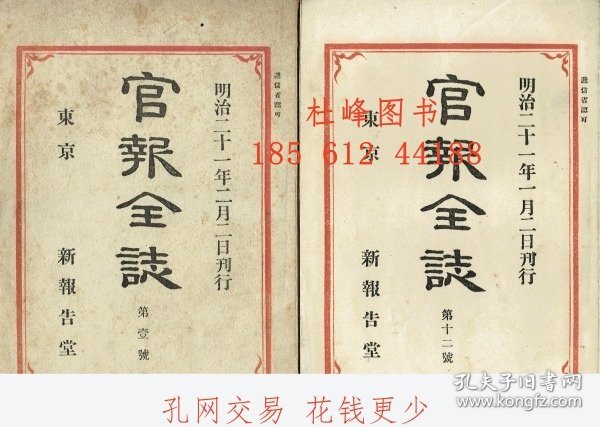 遞信省認可
明治二十一年二月二日刊行
官報全誌
第壹號
東京 新報告堂
遞信省認可
明治二十一年一月二日刊行
官報全誌
第十二號
東京 新報告堂
杜峰图书
185 612 44188
孔网交易 花钱更少
孔夫子旧书网
www.kongfz.com